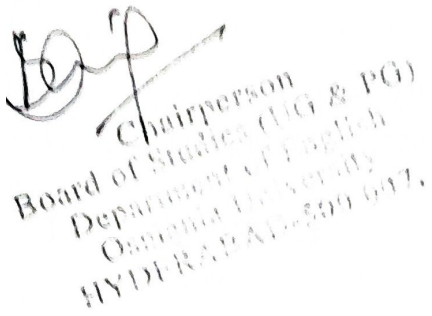 Chairperson
Board of Studies (UG & PG)
Department of English
Osmania University
HYDERABAD-500 007.